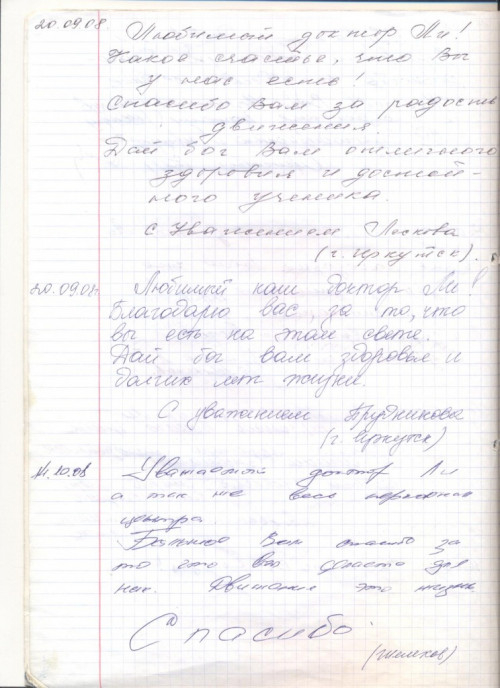 20.09.08 Любимый доктор Ли!
Какое счастье, что Вы
у нас есть!
Спасибо Вам за радость
движения.
Дай бог Вам отличного
здоровья и достой-
ного ученика.
С Уважением Лескова
(г. Иркутск).
20.09.08 Любимый наш доктор Ли!
Благодарю вас за то, что
вы есть на этом свете.
Дай бог вам здоровья и
долгих лет жизни.
С уважением Трудникова
(г. Иркутск)
11.10.08 Уважаемый доктор Ли
а так же весь персонал
центра
Большое Вам спасибо за
то что вы делаете для
нас. Движение это жизнь
Спасибо.